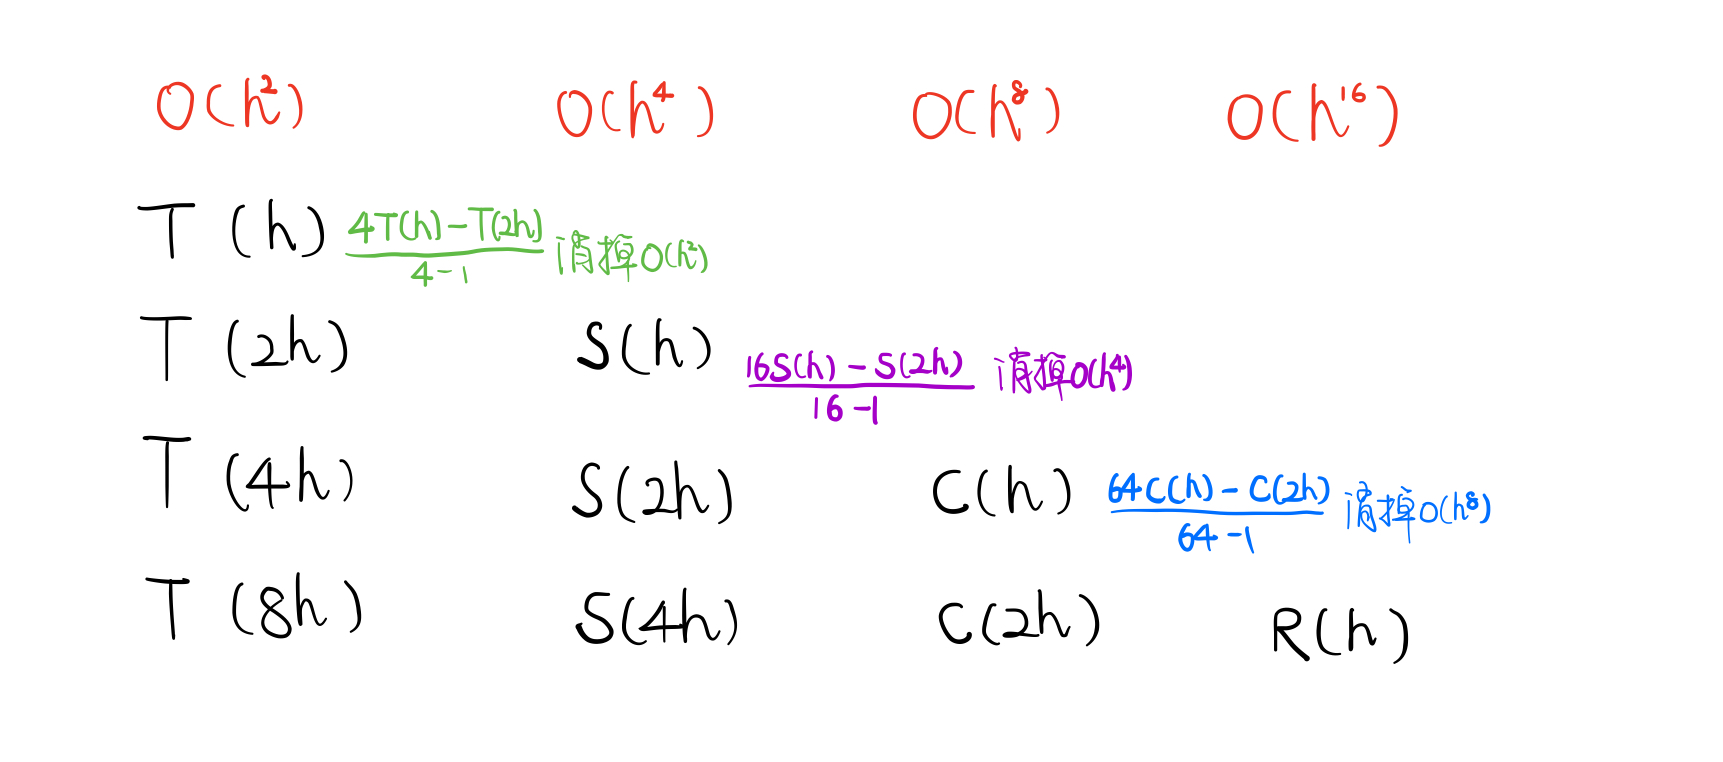 O(h²) O(h⁴) O(h⁸) O(h¹⁶)
T (h) 4T(h)-T(2h) / 4-1 消掉O(h²)
T (2h) S(h) 16S(h)-S(2h) / 16-1 消掉O(h⁴)
T (4h) S(2h) C(h) 64C(h)-C(2h) / 64-1 消掉O(h⁸)
T (8h) S(4h) C(2h) R(h)